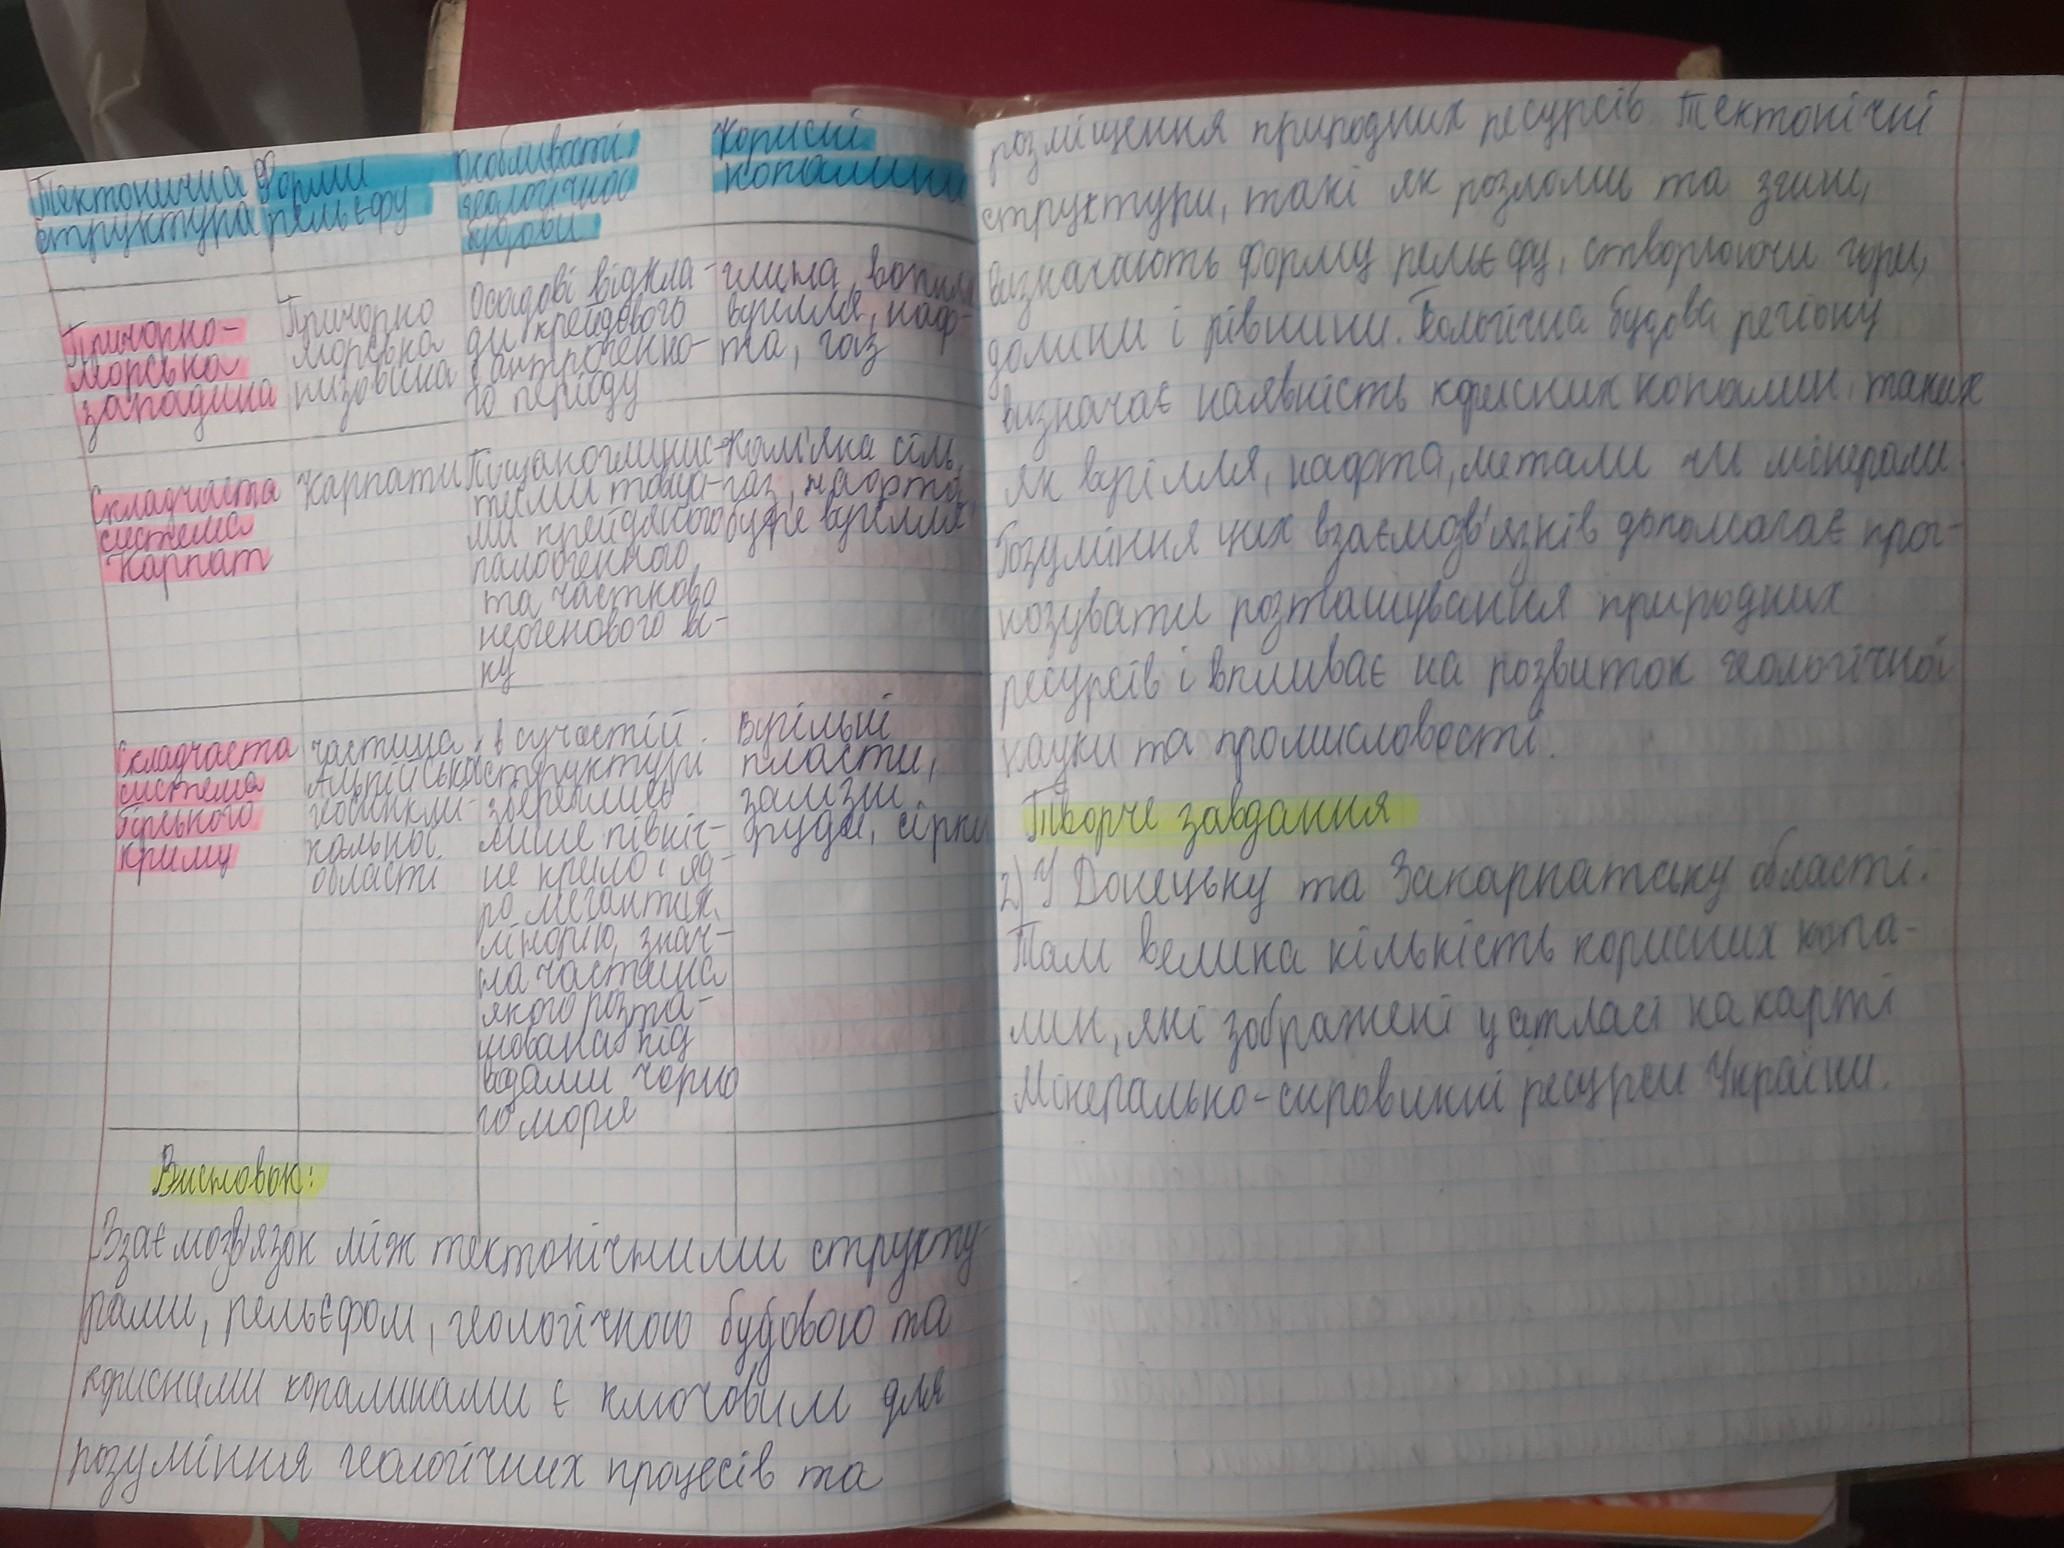 Тектонична структура
Форми рельєфу
Особливості геологічної будови
Корисні копалини
Причорно-
морська
западина
Причорно
морська
низовина
Осадові відкла-
ди крейдового
і антропгенно-
го періоду
глина,
вугілля, наф-
та, газ
Складчаста
система
Карпат
Карпати
Піщаноглинис-
тими товща-
ми крейдяного
палеогенного
та частково
неогенового ві-
ку
Кам'яна сіль,
газ, нафта,
буре вугілля
Складчаста
система
Гірського
криму
частина
Альпійської
геосинклі-
нальної
області
в сучастій
структури
збереглись
лише північ-
не крило і яд-
ро мегантик
лінорію, знач-
на частина
якого розта-
шована під
водами чорно
го моря
вугільні
пласти,
залізні
руди, сірки
Висновок:
Взаємозв'язок між тектонічними структу-
рами, рельєфом, геологічною будовою та
корисними копалинами є ключовим для
розуміння геологічних процесів та
розміщення природних ресурсів. Тектонічні
структури, такі як розломи та згини,
визначають форму рельєфу, створюючи гори,
долини і рівнини. Геологічна будова регіону
визначає наявність корисних копалин, таких
як вугілля, нафта, метали чи мінерали.
Розуміння цих взаємозв'язків допомагає прог-
нозувати розташування природних
ресурсів і впливає на розвиток геологічної
науки та промисловості.
Творче завдання
2) У Донецьку та Закарпатську області.
Там велика кількість корисних копа-
лин, які зображені у атласі на карті
Мінерально-сировинні ресурси України.